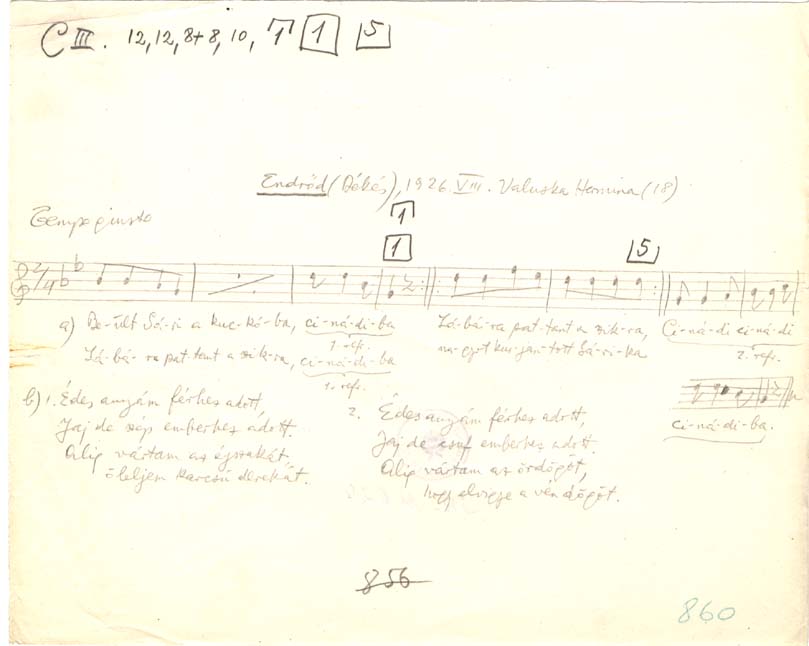 C III. 12, 12, 8+8, 10, 1 1 5
Endrőd (Békés), 1926. VIII. Valuska Hermina (18)
Tempo giusto
1
1 5
2/4
a) Be-ült Sá-ri a kuc-kó-ba, ci-ná-di-ba Lá-bá-ra pat-tant a szik-ra, Ci-ná-di ci-ná-di
1. refr. 2. refr.
Lá-bá-ra pat-tant a szik-ra, ci-ná-di-ba na-gyot kur-jan-tott Sá-ri-ka
1. refr.
ci-ná-di-ba.
b) 1. Édes anyám férhez adott,
Jaj de szép emberhez adott.
Alig vártam az éjszakát
öleljem karcsú derekát.
2. Édes anyám férhez adott,
Jaj de csuf emberhez adott.
Alig vártam az ördögöt,
hogy elvigye a vén dögöt.
856
860